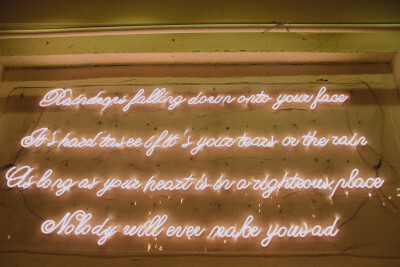 Raindrops falling down onto your face
It's hard to see if it's your tears or the rain
As long as your heart is in a righteous place
Nobody will ever make you sad